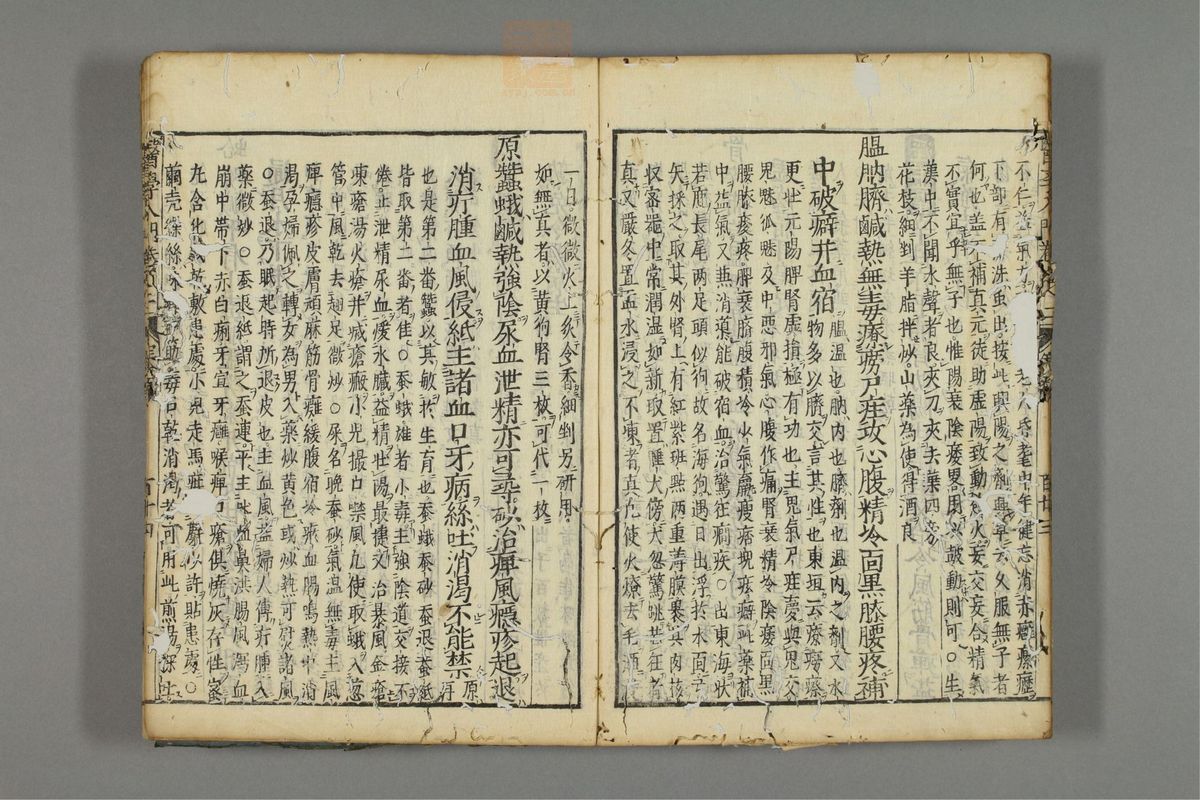 不仁益氣 老人昏耄中年健忘消赤癰瘰癧
下部有 洗虫出按此興陽之劑與草云久服無子者
何也盖不補真元徒助虛陽致動慾火妄交妄合精氣
不實宜乎無子也惟陽衰陰痿畧用以鼓動則可○生
藂中不聞水聲者良夾刀夾去葉四旁
花枝細剉羊脂拌炒山藥為使得酒良
膃肭臍鹹熱無毒療癆尸疰致心腹精冷面黑膝腰疼補
中破癖并血宿 膃溫也肭內也臍劑也溫內之劑又水
物多以臍交言其性也東垣云療癆瘵
更壯元陽脾腎虛損極有功也主鬼氣尸疰夢與鬼交
鬼魅狐魅及中惡邪氣心腹作痛腎衰精冷陰痿面黑
腰膝痠疼脾衰臍腹積冷少氣羸瘦痃癖此藥
中益氣又兼消導能破宿血治驚狂癎疾○出東海狀
若鹿長尾兩足頭似狗故名海狗遇日出浮於水面
矢採之取其外腎上有紅紫班點兩重薄膜裹其肉核
收密器中常潤濕如新取置睡犬傍犬忽驚跳若狂者
真又嚴冬置盂水浸之不凍者真凡使火燎去毛酒
一日微微火上炙令香細剉另研用
如無真者以黃狗腎三枚可代一枚
原蠶蛾鹹熱強陰尿血泄精亦可柔砂治痺風癮疹起退
消疔腫血風侵紙主諸血口牙病絲吐消渴不能禁 原再
也是第二畨蠶以其敏於生育也蚕蛾蚕砂蚕退蚕紙
皆取第二畨者佳○蚕蛾雄者小毒主強陰道交接不
倦止泄精尿血煖水臟益精壯陽最捷又治暴風金瘡
凍瘡湯火瘡并滅瘡瘢小兒撮口禁風凡使取蛾入葱
管中風乾去翅足微炒○屎名晚蚕砂氣溫無毒主風
痺癮疹皮膚頑麻筋骨癱緩腹宿冷瘀血腸鳴熱中消
渴孕婦佩之轉女為男入藥炒黃色或炒熱可熨諸風
○蚕退乃眠起時所退皮也主血風益婦人傳疔腫入
藥微炒○蚕退紙謂之蚕連平主吐血鼻洪腸風瀉血
崩中帶下赤白痢牙宣牙癰喉痺口瘡俱燒灰存性蜜
丸含化 乾敷患處小兒走馬疳 麝以許貼患處○
繭売絲綿 毒口乾消渴者可用此煎湯探吐